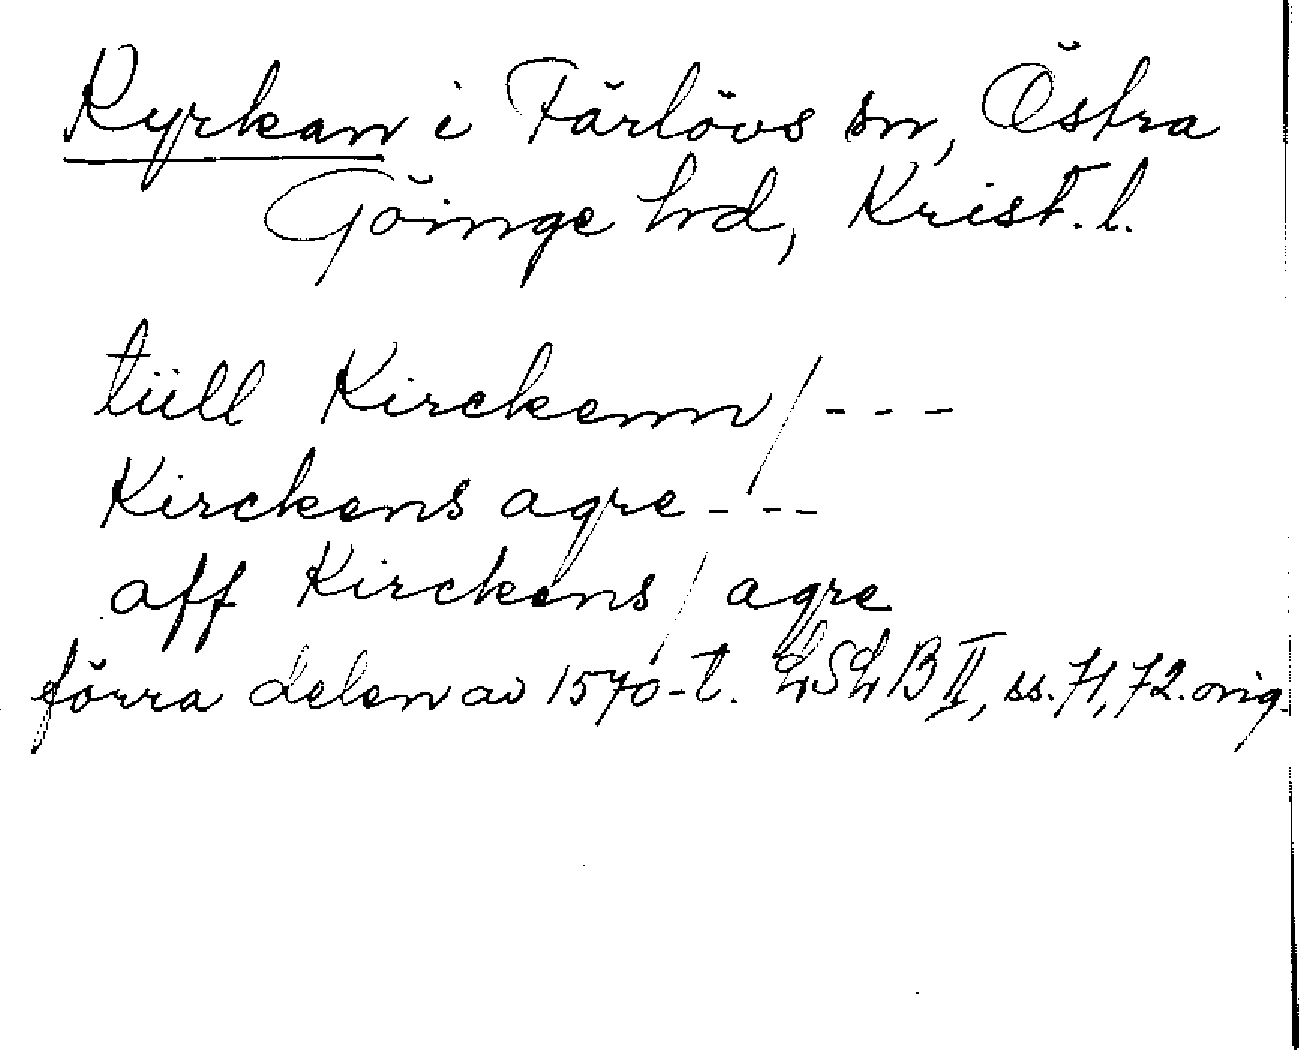 Kyrkan i Färlövs sn, Östra
Göinge hd, Krist. l.
tüll Kirckenn/---
Kirckens agre---
aff Kirckens/agre
förra delen av 1570-t. LSLB II, ss. 71, 72. orig.